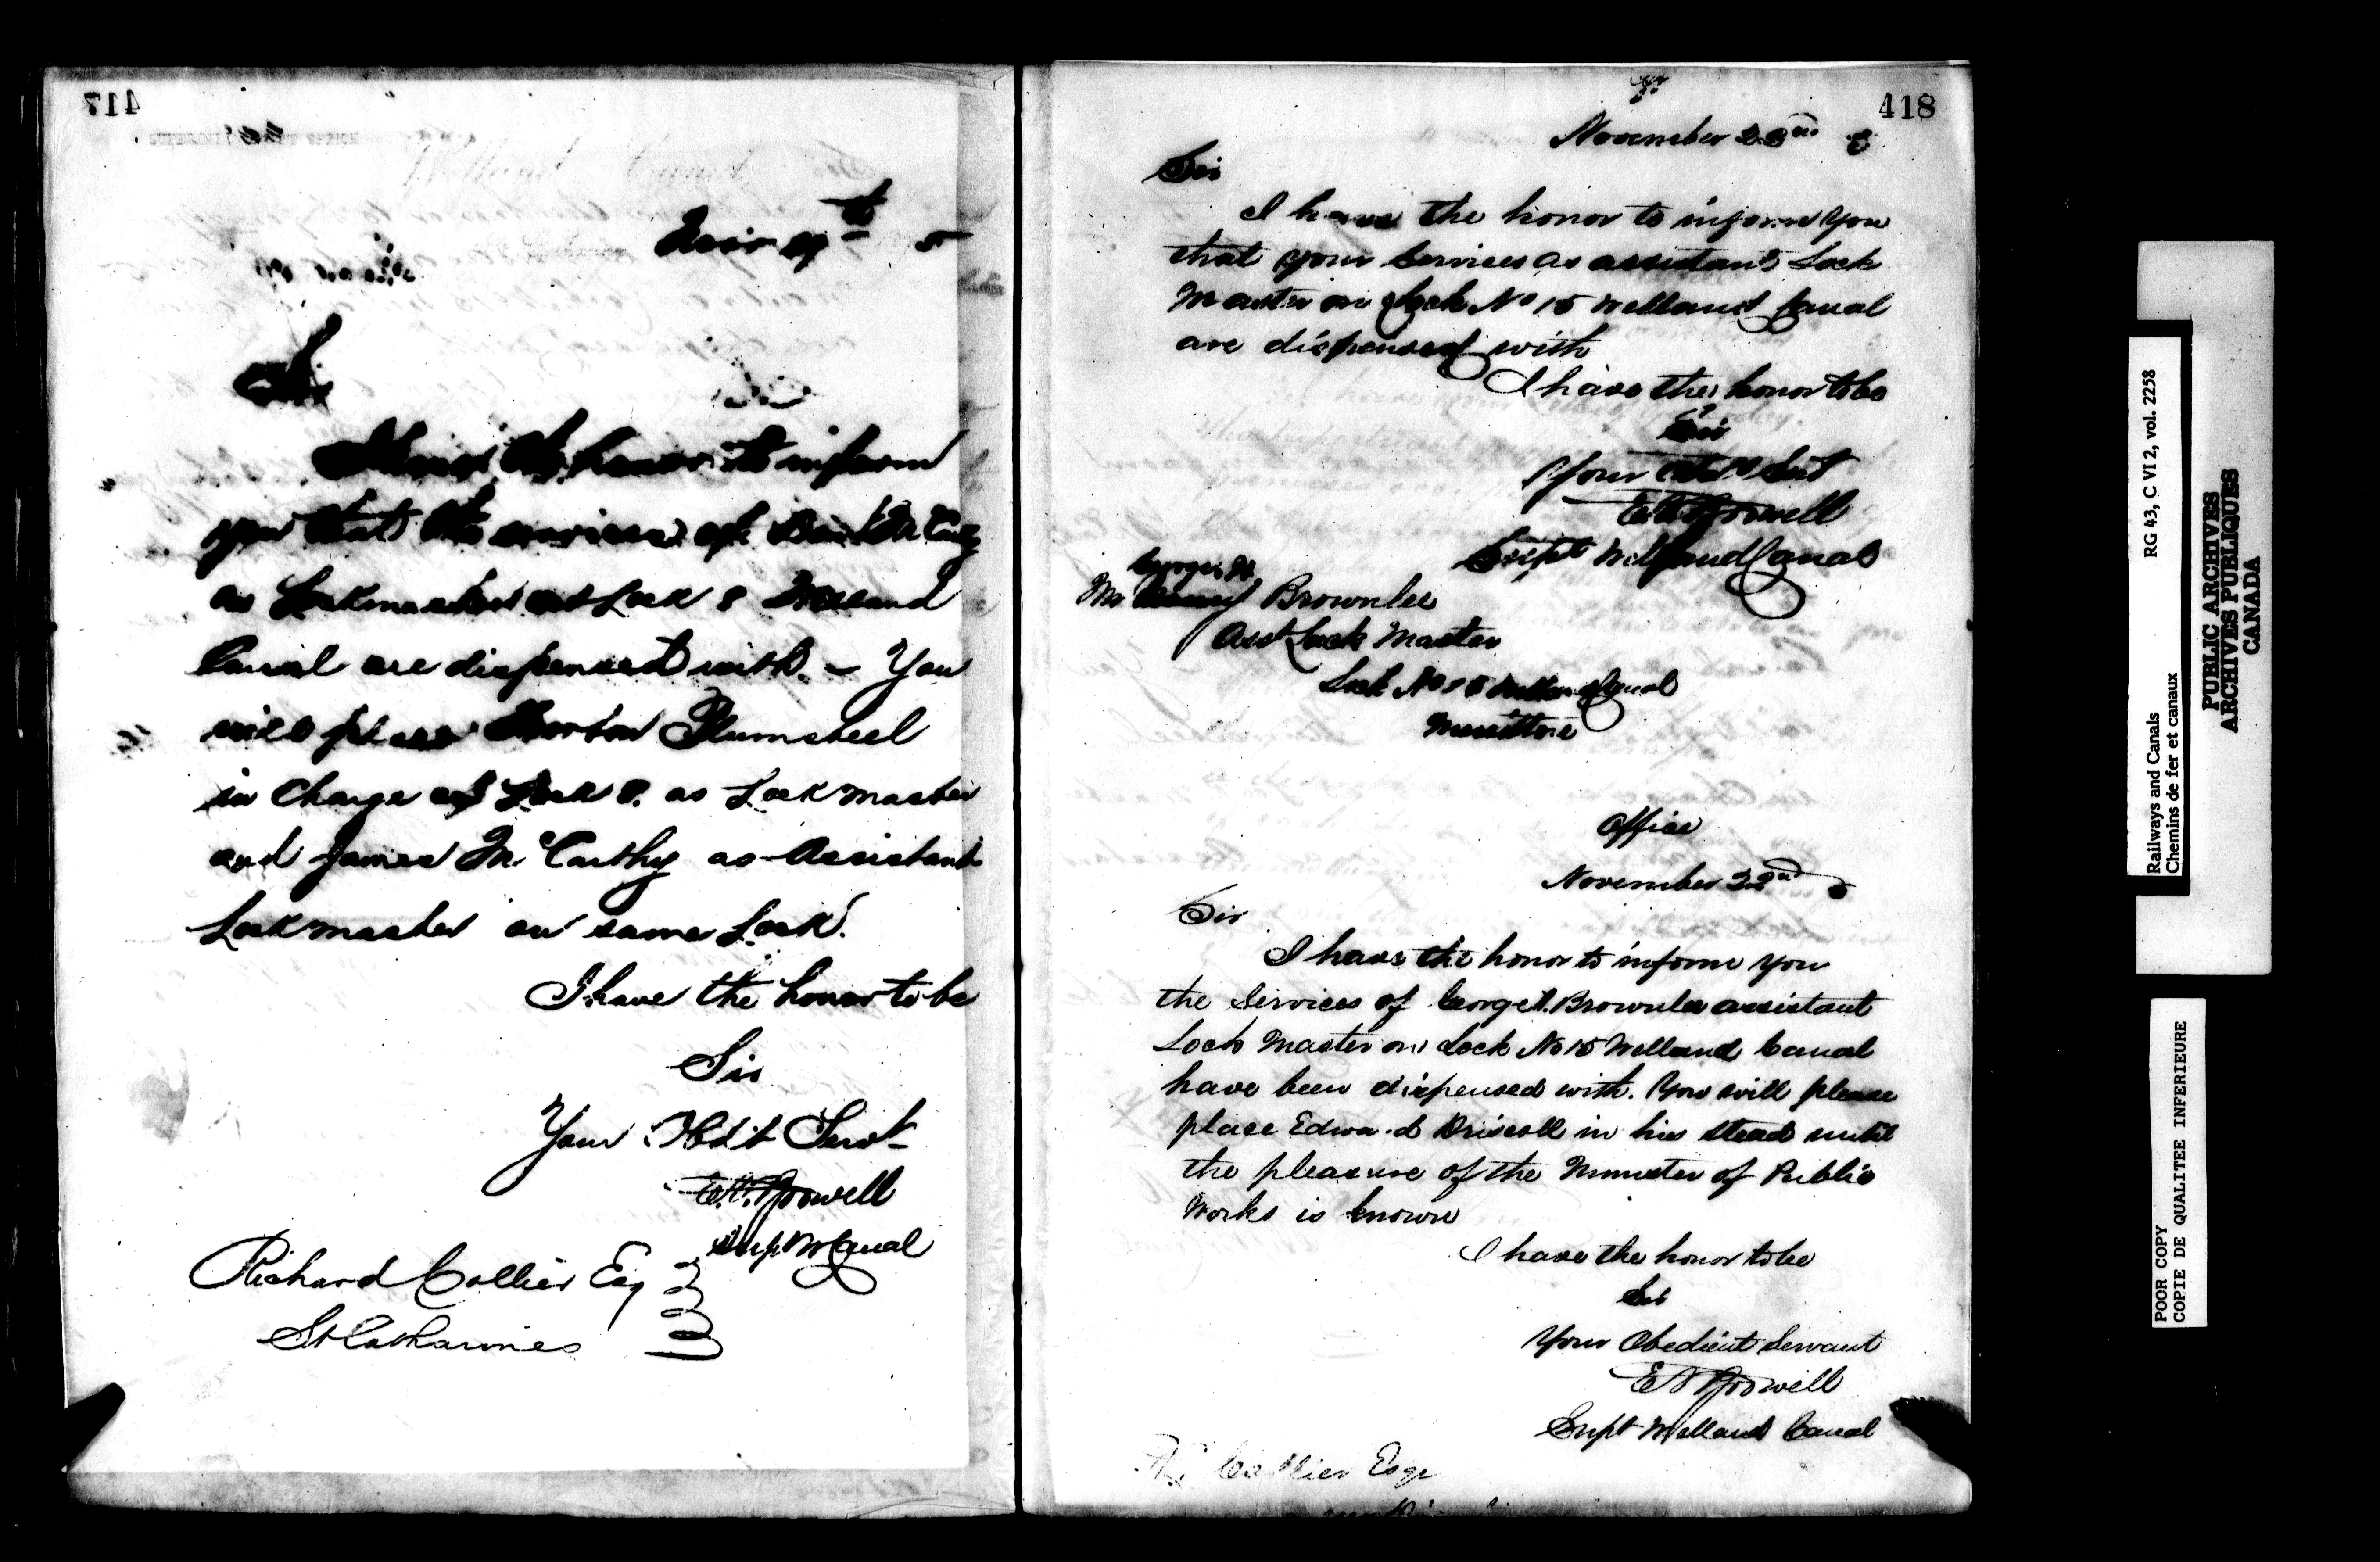 417
Nov 19th 5
Sir
I have the honor to inform
you that the services of Danl McCarthy
as Lockmaster at Lock 8 Welland
Canal are dispensed with. – You
will please Horton Plumsteel
in Charge of Lock 8. as Lockmaster
and James McCarthy as Assistant
Lockmaster on same Lock.
I have the honor to be
Sir
Your Obdt Servt
Supt W Canal
Richard Collier Esq
St Catharines
418
November 22nd 5
Sir
I have the honor to inform you
that your Services as assistant Lock
Master on Lock No 15 Welland Canal
are dispensed with
I have the honor to be
Sir
Your Obdt Sert
Supt Welland Canal
George
Mr Brownlee
Asst Lock Master
Lock No 15 Welland Canal
Merritton
Office
November 22nd 5
Sir
I have the honor to inform you
the Services of George Brownlee assistant
Lock Master on Lock No 15 Welland Canal
have been dispensed with. You will please
place Edward Driscoll in his stead until
the pleasure of the Minister of Public
Works is known
I have the honor to be
Sir
Your Obedient Servant
Supt Welland Canal
Collier Esqr
Railways and Canals RG 43, C VI 2, vol. 2258
Chemins de fer et canaux
PUBLIC ARCHIVES
ARCHIVES PUBLIQUES
CANADA
POOR COPY
COPIE DE QUALITEE INFERIEURE